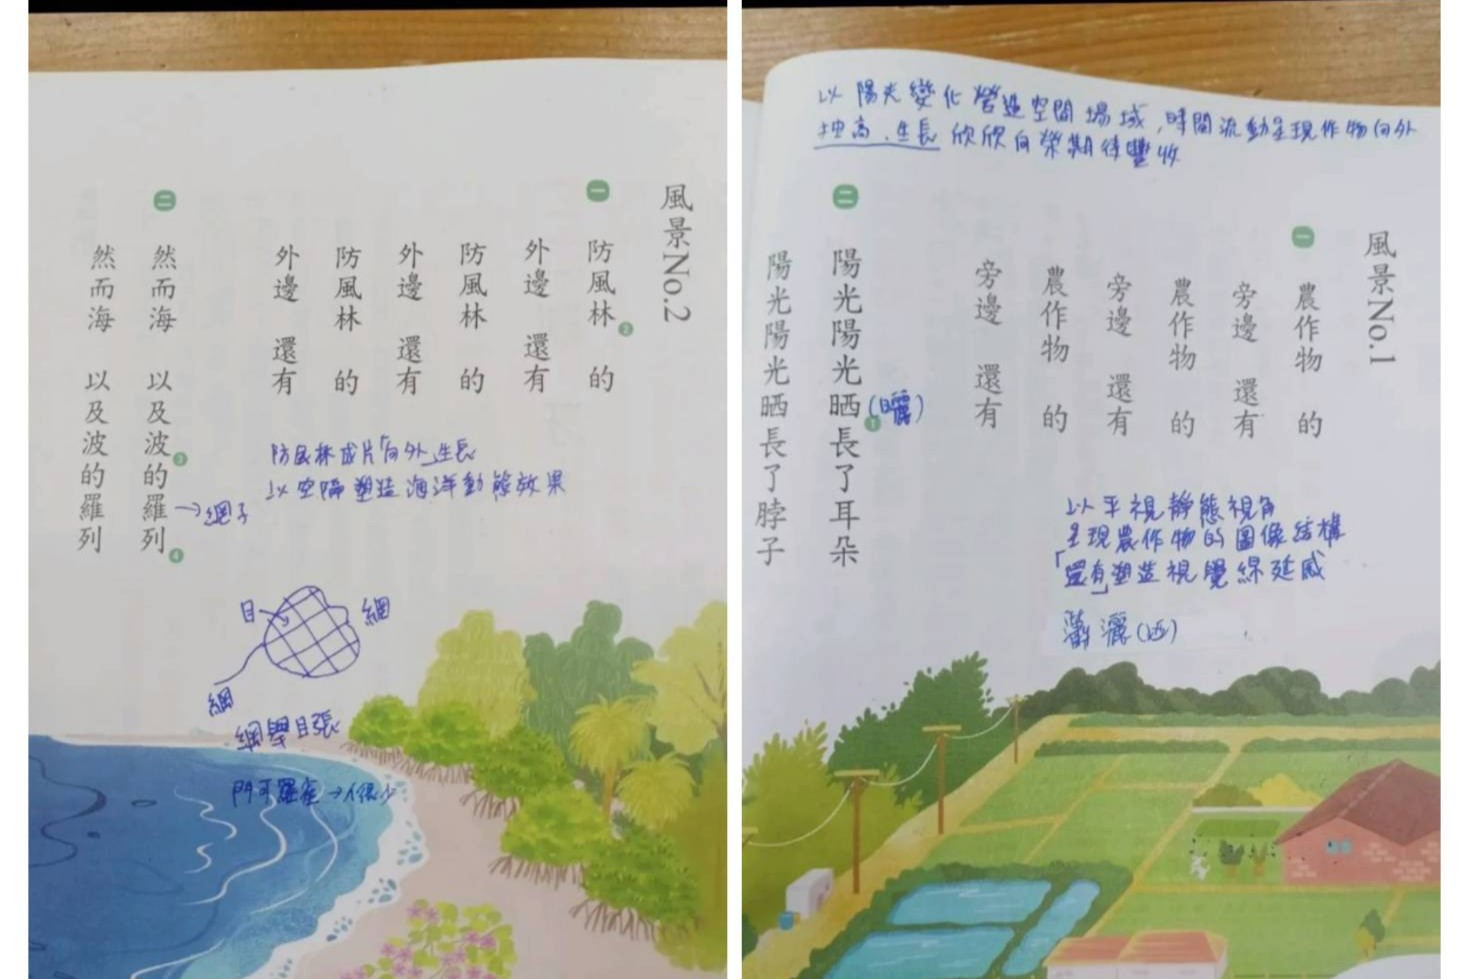 以陽光變化營造空間場域，時間流動呈現作物向外
抽高、生長欣欣向榮期待豐收
風景No.1
一
農作物 的
旁邊 還有
農作物 的
旁邊 還有
農作物 的
旁邊 還有
二
陽光陽光晒長了耳朵
1
(曬)
陽光陽光晒長了脖子
以平視靜態視角
呈現農作物的圖像結構
「還有」塑造視覺綿延感
灑(洒)
風景No.2
一
防風林 的
2
外邊 還有
防風林 的
外邊 還有
防風林 的
外邊 還有
二
然而海 以及波的羅列
3
4
→網子
然而海 以及波的羅列
防風林成片「向外」生長
以空隔塑造海洋動態效果
目
網
網
網舉目張
門可羅雀→人很少